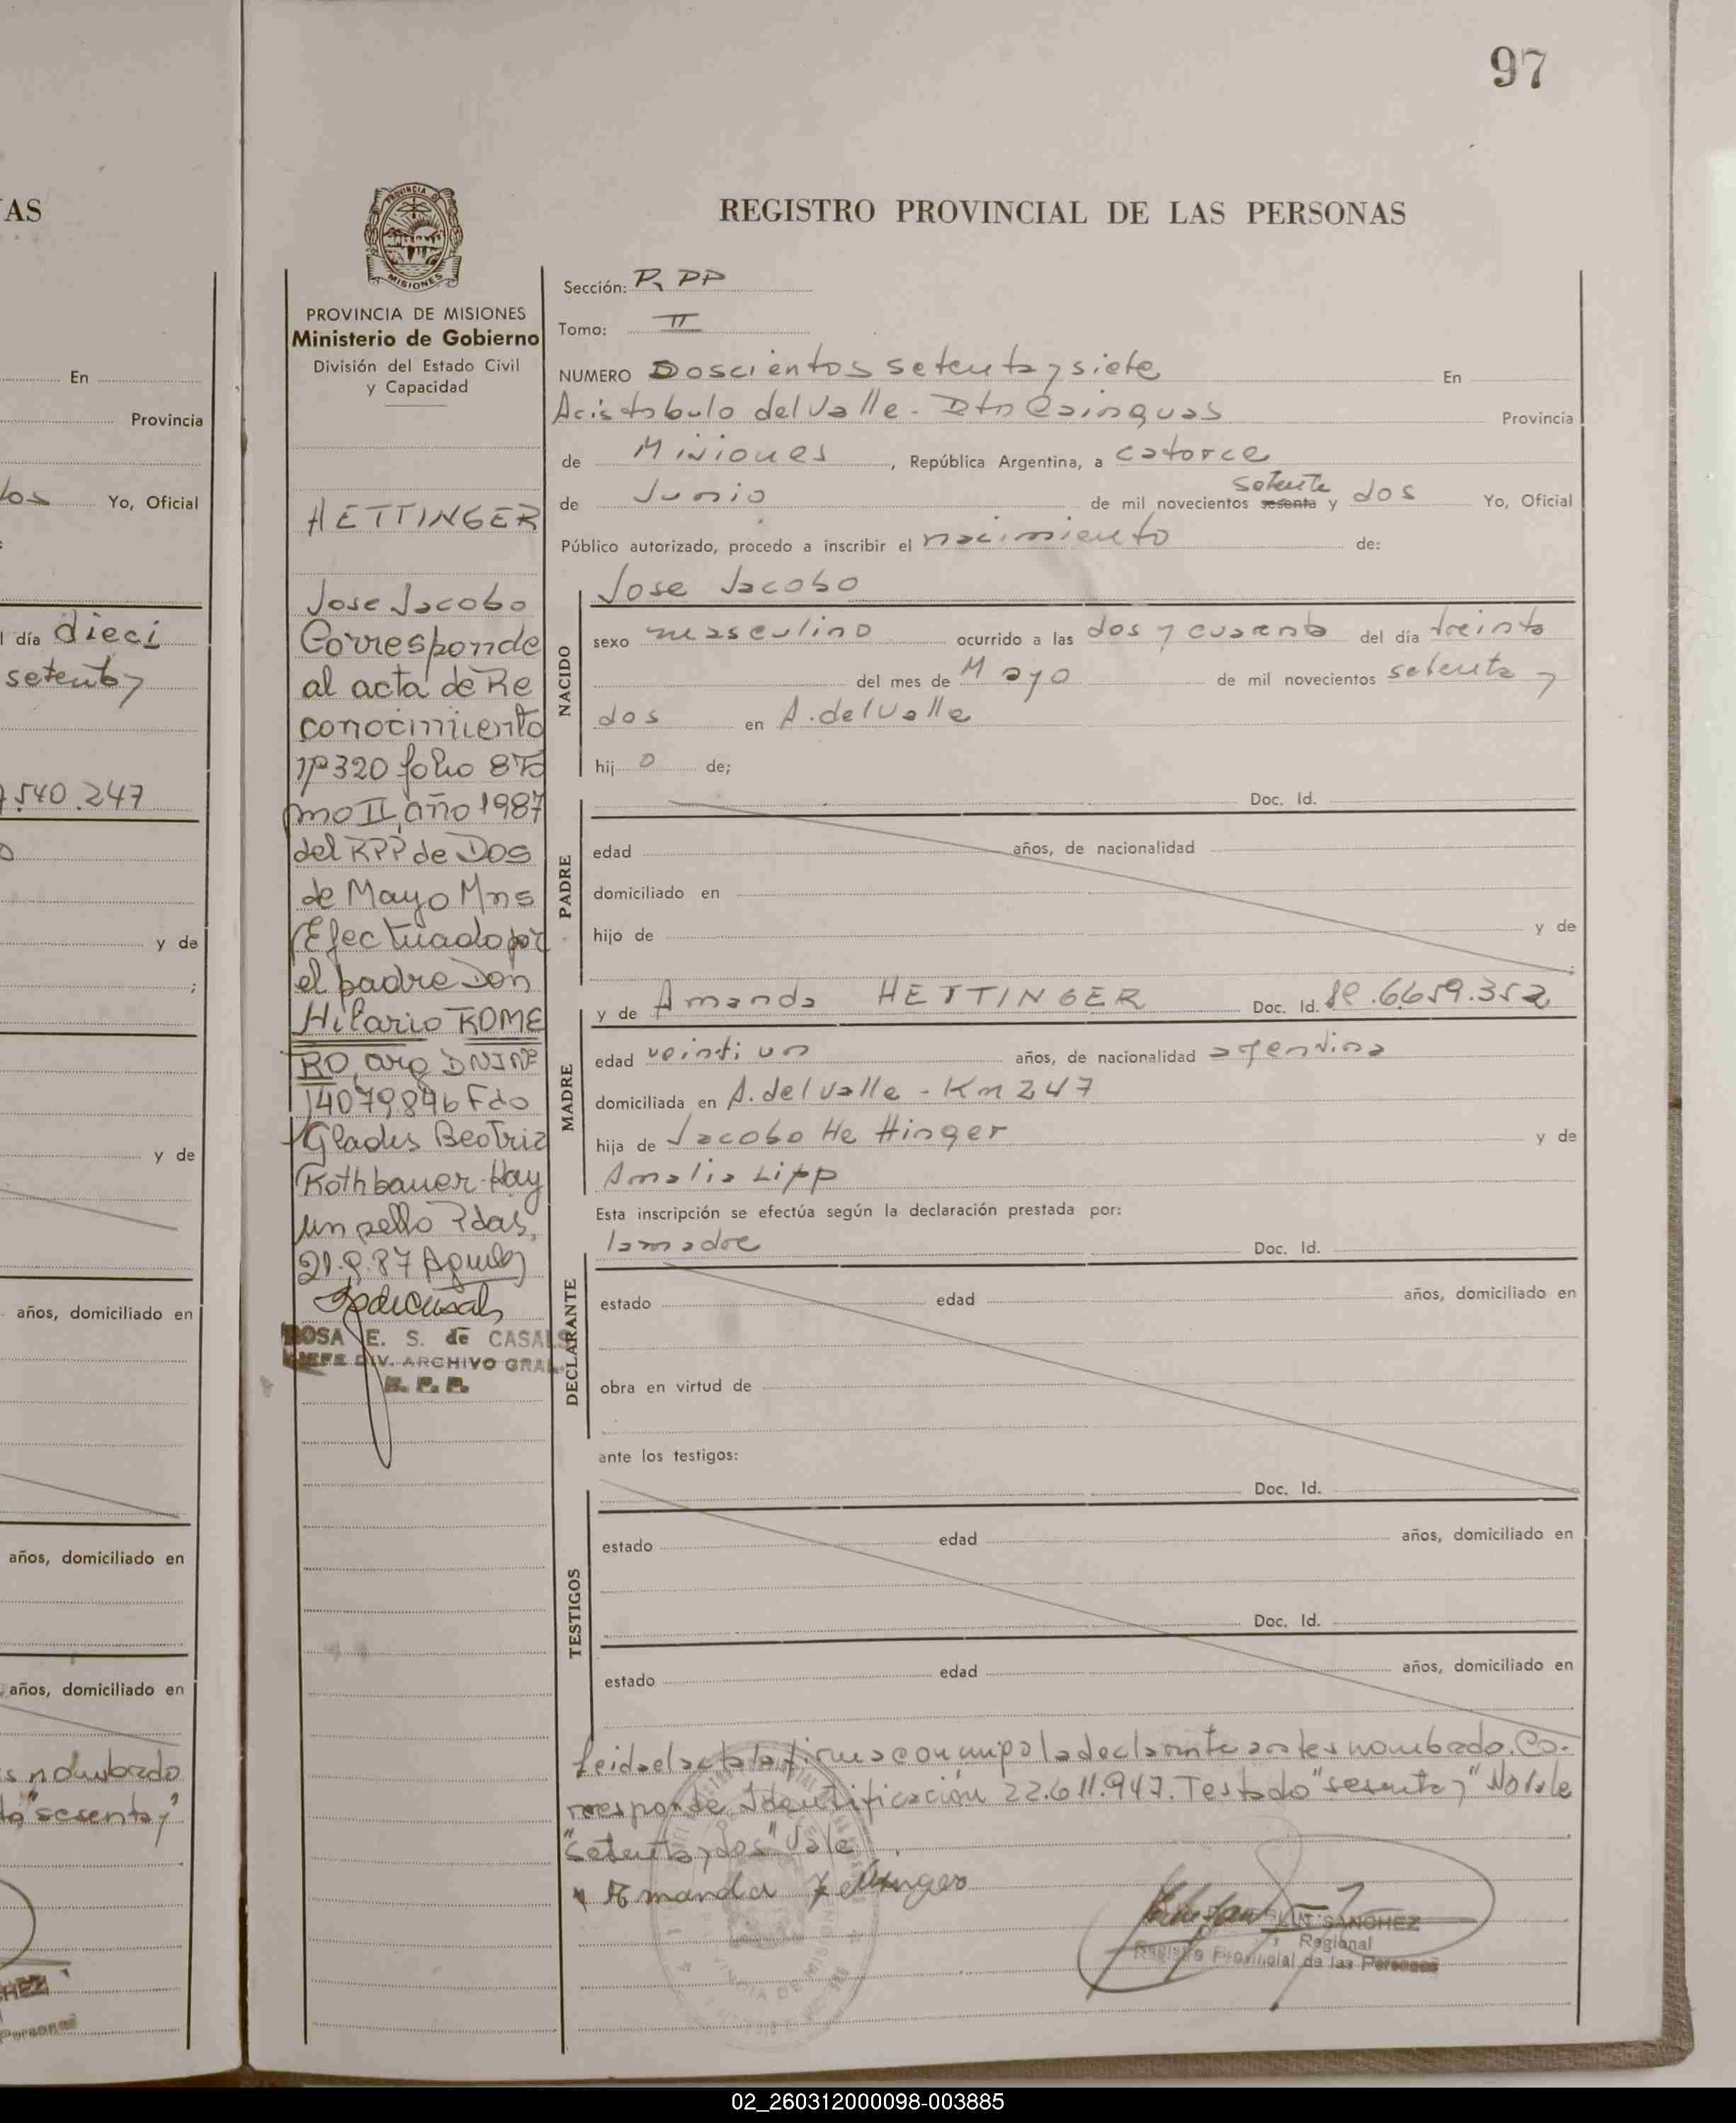 97
AS
REGISTRO PROVINCIAL DE LAS PERSONAS
PROVINCIA DE MISIONES
Ministerio de Gobierno
División del Estado Civil
y Capacidad
HETTINGER
Jose Jacobo
Corresponde
al acta de Re
conocimiento
Nº 320 folio 8 To
mo II, año 1987
del RPP de Dos
de Mayo Mns
Efectuado por
el padre Don
Hilario ROME
RO, arg DNI Nº
14079846 Fdo
Gladis Beatriz
Rothbauer Hay
un sello Pdas,
21.9.87
ROSA E. S. de CASALS
JEFE DIV. ARCHIVO GRAL.
R. P. P.
Sección: R PP
Tomo: II
NUMERO Doscientos setenta y siete En
Aristobulo del Valle - Dto Cainguas Provincia
de Misiones, República Argentina, a catorce
setenta
de Junio de mil novecientos sesenta y dos Yo, Oficial
Público autorizado, procedo a inscribir el nacimiento de:
Jose Jacobo
NACIDO
sexo masculino ocurrido a las dos y cuarenta del día treinta
del mes de Mayo de mil novecientos setenta y
dos en A. del Valle
hijo de;
PADRE
Doc. Id.
edad años, de nacionalidad
domiciliado en
hijo de y de
;
MADRE
y de Amanda HETTINGER Doc. Id. 6659.352
edad veintiun años, de nacionalidad argentina
domiciliada en A. del Valle - Km 247
hija de Jacobo Hettinger y de
Amalia Lipp
Esta inscripción se efectúa según la declaración prestada por:
DECLARANTE
la madre Doc. Id.
estado edad años, domiciliado en
obra en virtud de
ante los testigos:
TESTIGOS
Doc. Id.
estado edad años, domiciliado en
Doc. Id.
estado edad años, domiciliado en
Leida el acta la firma conmigo la declarante antes nombrada. Co-
rresponde Identificación 22.611.947. Testado "sesenta y" No vale
"setenta y dos" Vale
Amanda
SANCHEZ
Regional
Registro Provincial de las Personas
En
Provincia
Yo, Oficial
día dieci
setenta y
540.247
y de
;
y de
años, domiciliado en
años, domiciliado en
años, domiciliado en
nombrado
"sesenta y"
02_260312000098-003885